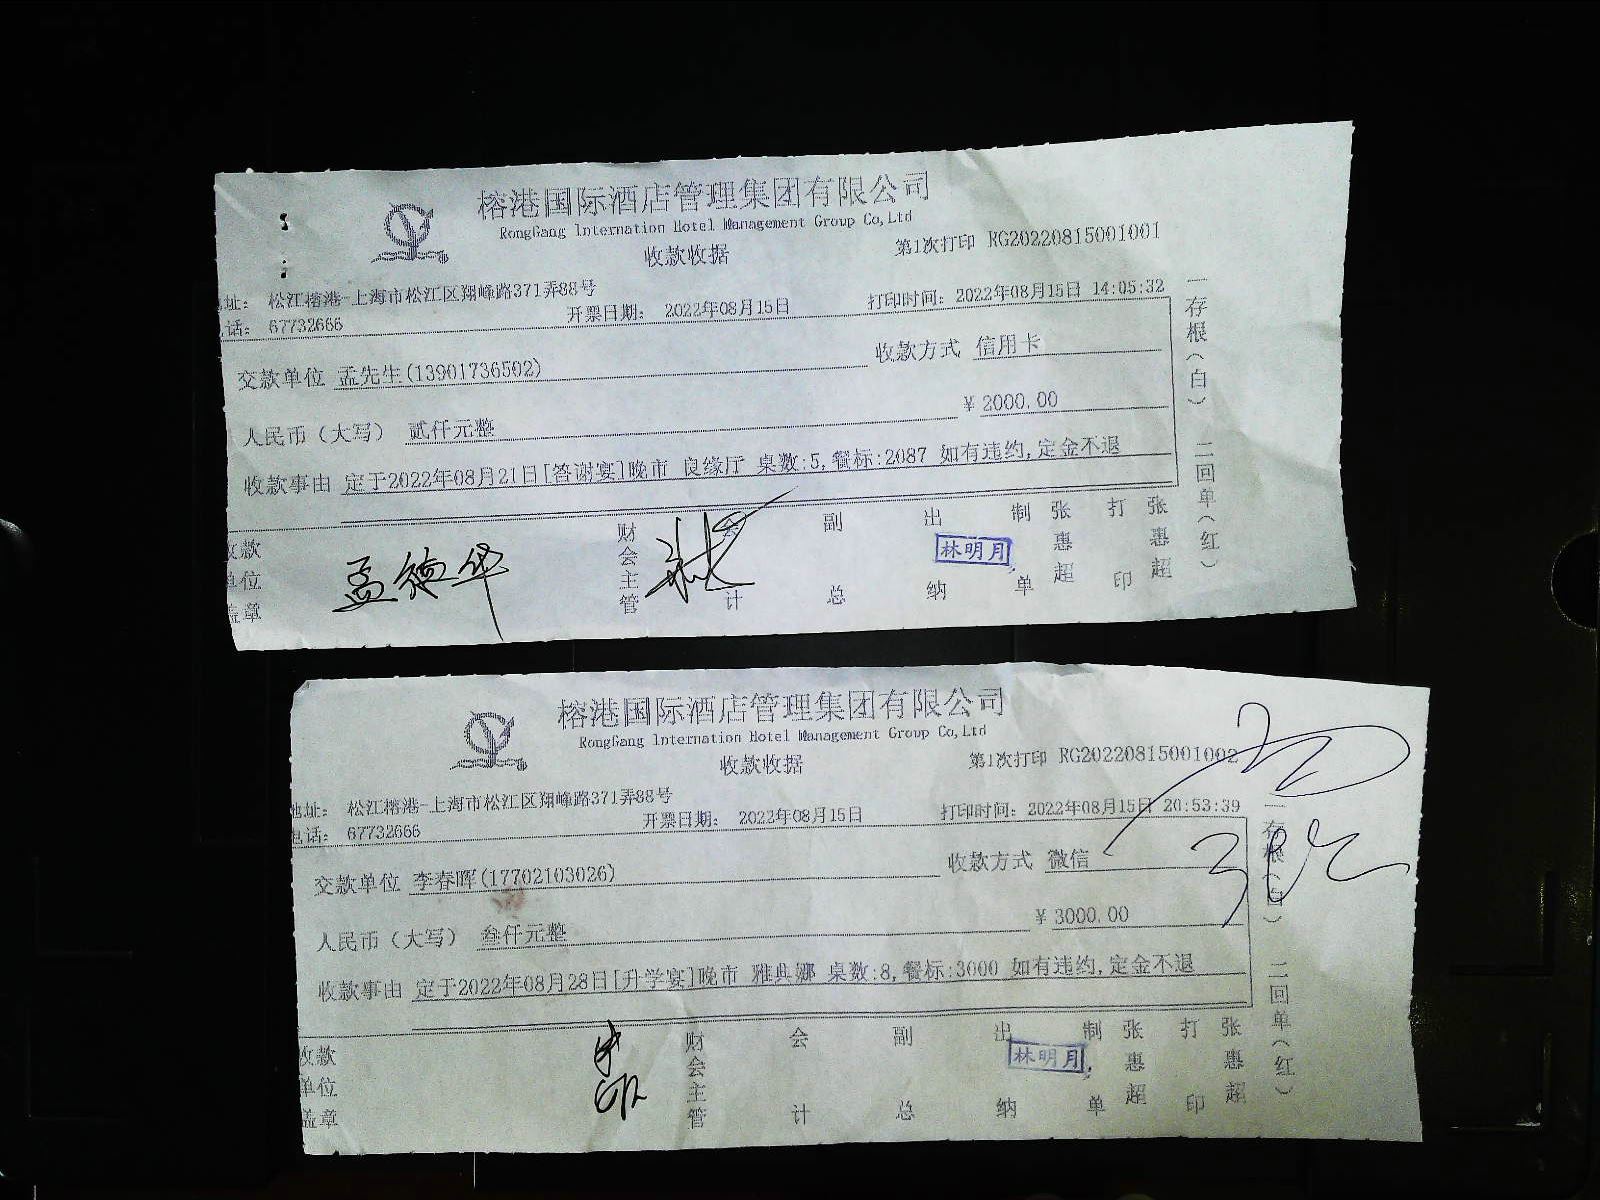 榕港国际酒店管理集团有限公司
RongGang Internation Hotel Management Group Co,Ltd
收款收据
第1次打印 RG20220815001001
址： 松江榕港-上海市松江区翔峰路371弄88号
话： 67732666
开票日期： 2022年08月15日
打印时间：2022年08月15日 14:05:32
交款单位 孟先生(13901736502)
收款方式 信用卡
人民币（大写） 贰仟元整
¥ 2000.00
收款事由 定于2022年08月21日[答谢宴]晚市 良缘厅 桌数:5,餐标:2087 如有违约,定金不退
收款单位盖章
孟德华
财会主管
会计
副总
出纳
林明月
制单
张惠超
打印
张惠超
一存根（白） 二回单（红）
榕港国际酒店管理集团有限公司
RongGang Internation Hotel Management Group Co,Ltd
收款收据
第1次打印 RG20220815001002
地址： 松江榕港-上海市松江区翔峰路371弄88号
电话： 67732666
开票日期： 2022年08月15日
打印时间：2022年08月15日 20:53:39
交款单位 李春晖(17702103026)
收款方式 微信
人民币（大写） 叁仟元整
¥ 3000.00
收款事由 定于2022年08月28日[升学宴]晚市 雅典娜 桌数:8,餐标:3000 如有违约,定金不退
收款单位盖章
财会主管
会计
副总
出纳
林明月
制单
张惠超
打印
张惠超
一存根（白） 二回单（红）